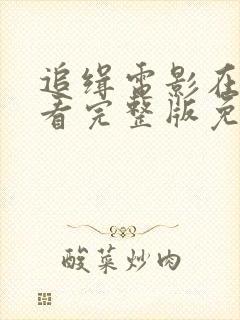 追缉电影在
看完整版免
酸菜炒肉